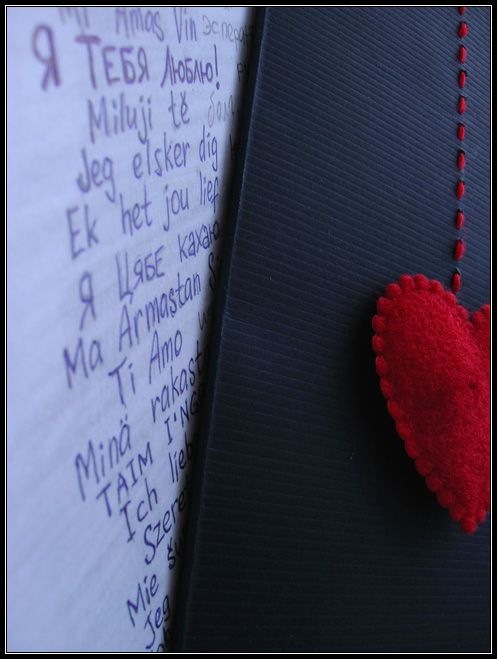 Mi Amas Vin Эсперан
Я ТЕБЯ ЛЮБЛЮ!
Miluji tě
Jeg elsker dig
Ek het jou lief
Я ЦЯБЕ кахаю
Ma Armastan S
Ti Amo
Minä rakast
TAIM I'NG
Ich lieb
Szere
Mie
Jeg